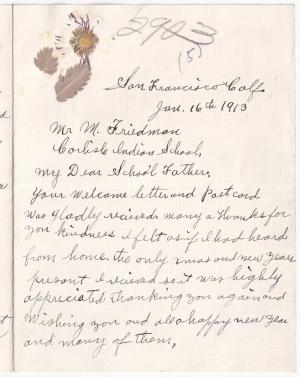 2923
(5)
San Francisco Calf.
Jan. 16th 1913
Mr M. Friedman
Carlisle Indian School,
My Dear School Father:
Your Welcome letter and Postcard
was gladly recieved many a thanks for
you kindness I felt as if I had heard
from home. the only xmas and new years
present I recieved so it was highly
appreciated thanking you again and
Wishing you and all a happy new year
and many of them,